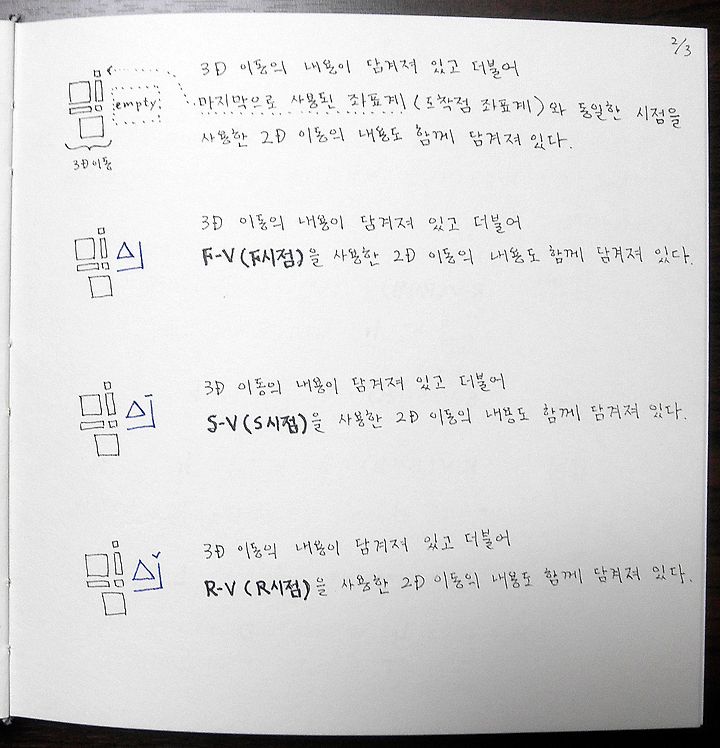 2/3
3D 이동의 내용이 담겨져 있고 더불어
empty
마지막으로 사용된 좌표계 (도착점 좌표계)와 동일한 시점을
사용한 2D 이동의 내용도 함께 담겨져 있다.
3D 이동
3D 이동의 내용이 담겨져 있고 더불어
F-V (F시점)을 사용한 2D 이동의 내용도 함께 담겨져 있다.
3D 이동의 내용이 담겨져 있고 더불어
S-V (S시점)을 사용한 2D 이동의 내용도 함께 담겨져 있다.
3D 이동의 내용이 담겨져 있고 더불어
R-V (R시점)을 사용한 2D 이동의 내용도 함께 담겨져 있다.